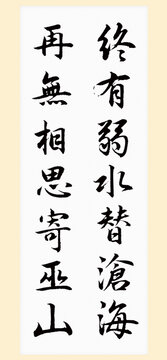 终有弱水替滄海
再無相思寄巫山